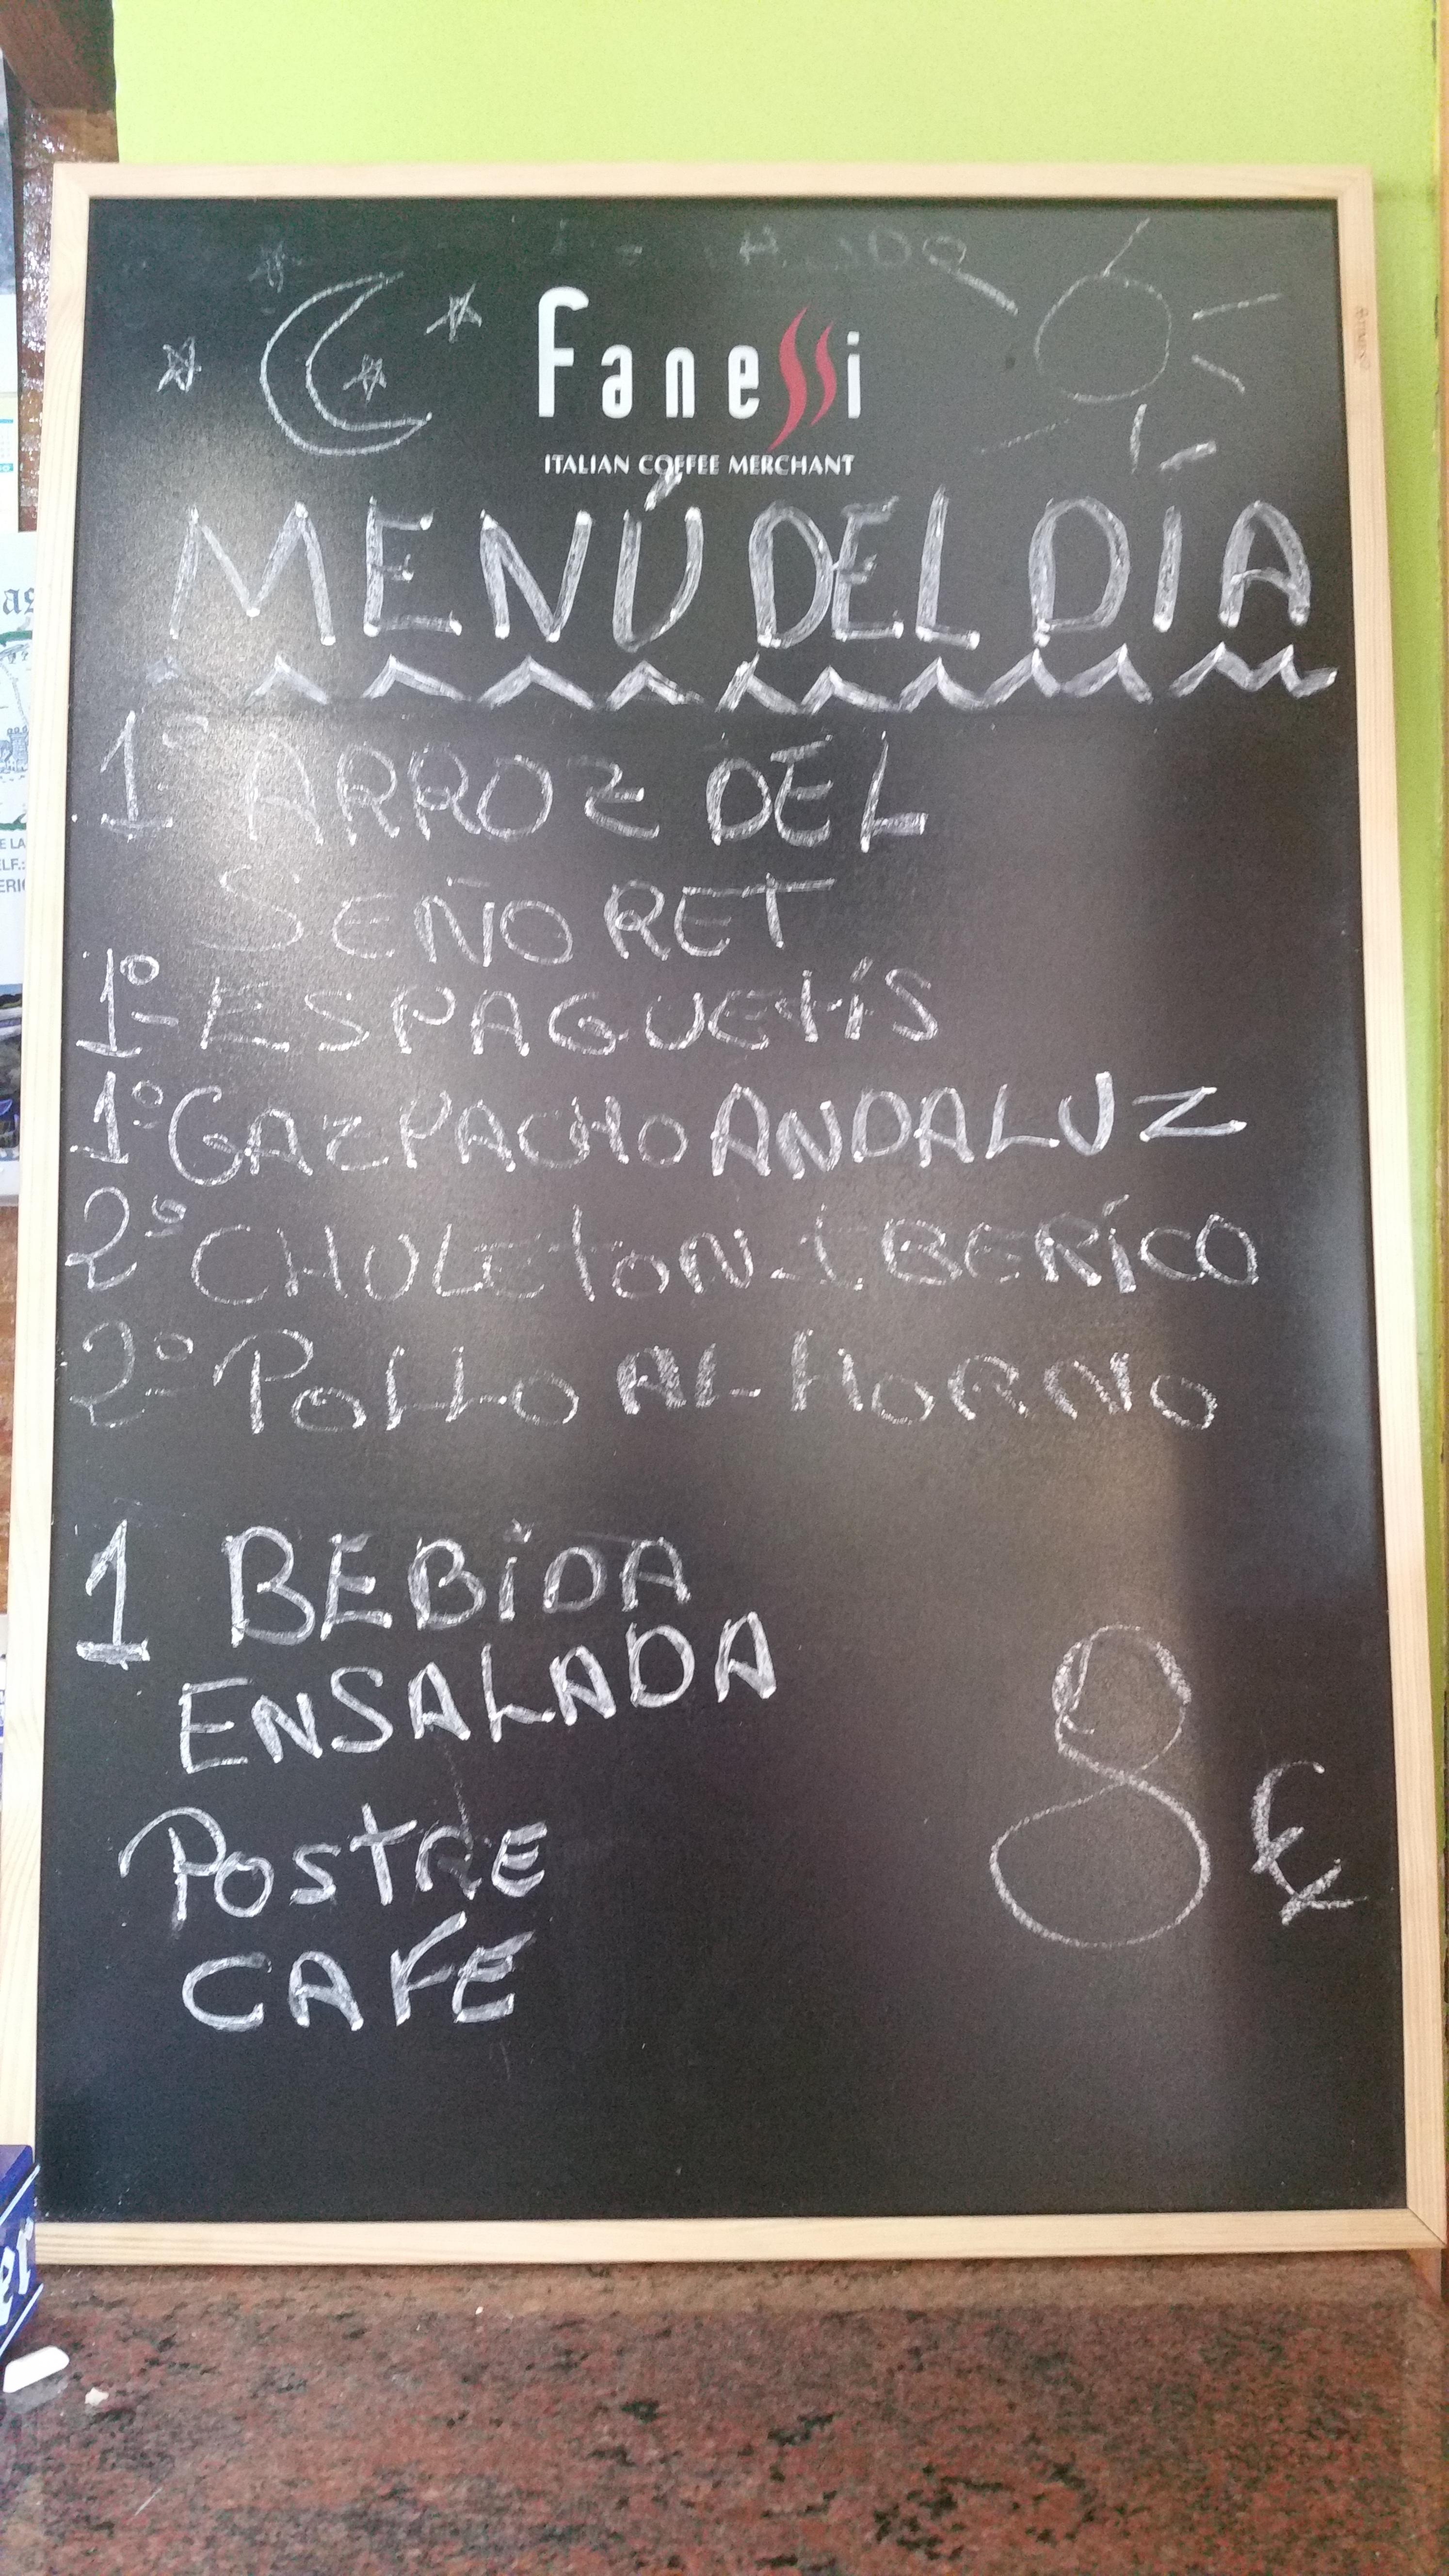 Fanessi
ITALIAN COFFEE MERCHANT
MENÚ DEL DÍA
1º ARROZ DEL
SEÑORET
1º ESPAGUETIS
1º GAZPACHO ANDALUZ
2º CHULETON IBERICO
2º POLLO AL HORNO
1 BEBIDA
ENSALADA
POSTRE
CAFE
8 €